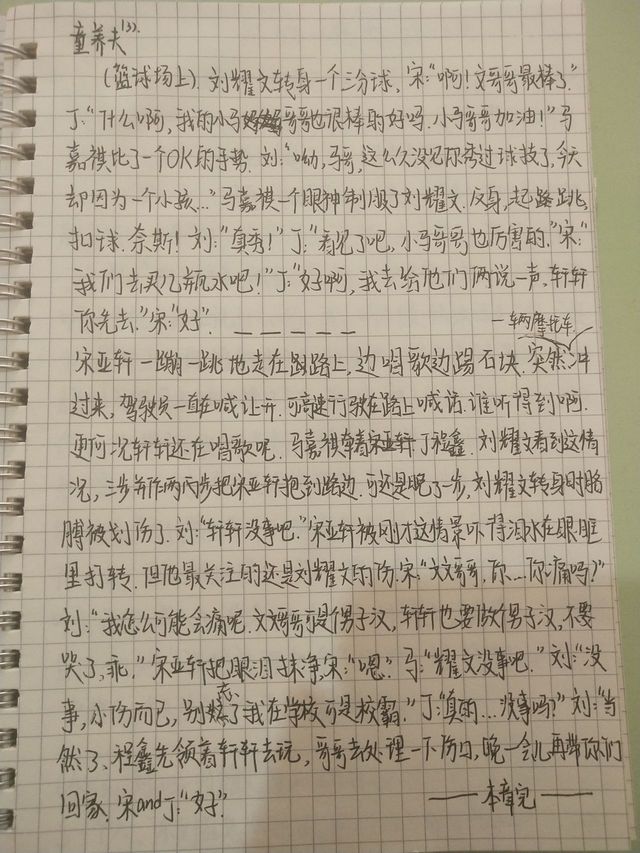 童养夫(3).
(篮球场上).刘耀文转身一个三分球,宋:"啊!文哥哥最棒了"
丁:"什么啊,我的小马哥哥也很棒的好吗.小马哥哥加油!"马
嘉祺比了一个OK的手势.刘:"呦,马哥,这么久没见你秀过球技了,今天
却因为一个小孩..."马嘉祺一个眼神制服了刘耀文.反身,起跳,
扣球.奈斯!刘:"真秀!"丁:"看见了吧,小马哥哥也厉害的."宋:"
我们去买几瓶水吧!"丁:"好啊,我去给他们俩说一声,轩轩
你先去."宋:"好".
一辆摩托车
宋亚轩一蹦一跳地走在路上,边唱歌边踢石块.突然冲
过来,驾驶员一直在喊让开.可高速行驶在路上喊话.谁听得到啊.
更何况轩轩还在唱歌呢.马嘉祺牵着丁程鑫.刘耀文看到这情
况,三步并作两步把宋亚轩抱到路边.可还是晚了一步,刘耀文转身时胳
膊被划伤了.刘:"轩轩没事吧."宋亚轩被刚才这情景吓得泪水在眼眶
里打转.但他最关注的还是刘耀文的伤.宋:"文文哥哥.你...你痛吗?"
刘:"我怎么可能会痛呢.文文哥哥可是个男子汉,轩轩也要做个男子汉,不要
哭了,乖."宋亚轩把眼泪抹净.宋:"嗯."马:"耀文没事吧."刘:"没
事,小伤而已,别忘了我在学校可是校霸."丁:"真的...没事吗?"刘:"当
然了、程鑫先领着轩轩去玩,哥哥去处理一下伤口,晚一会儿再带你们
回家.宋and丁:"好".
——本章完——